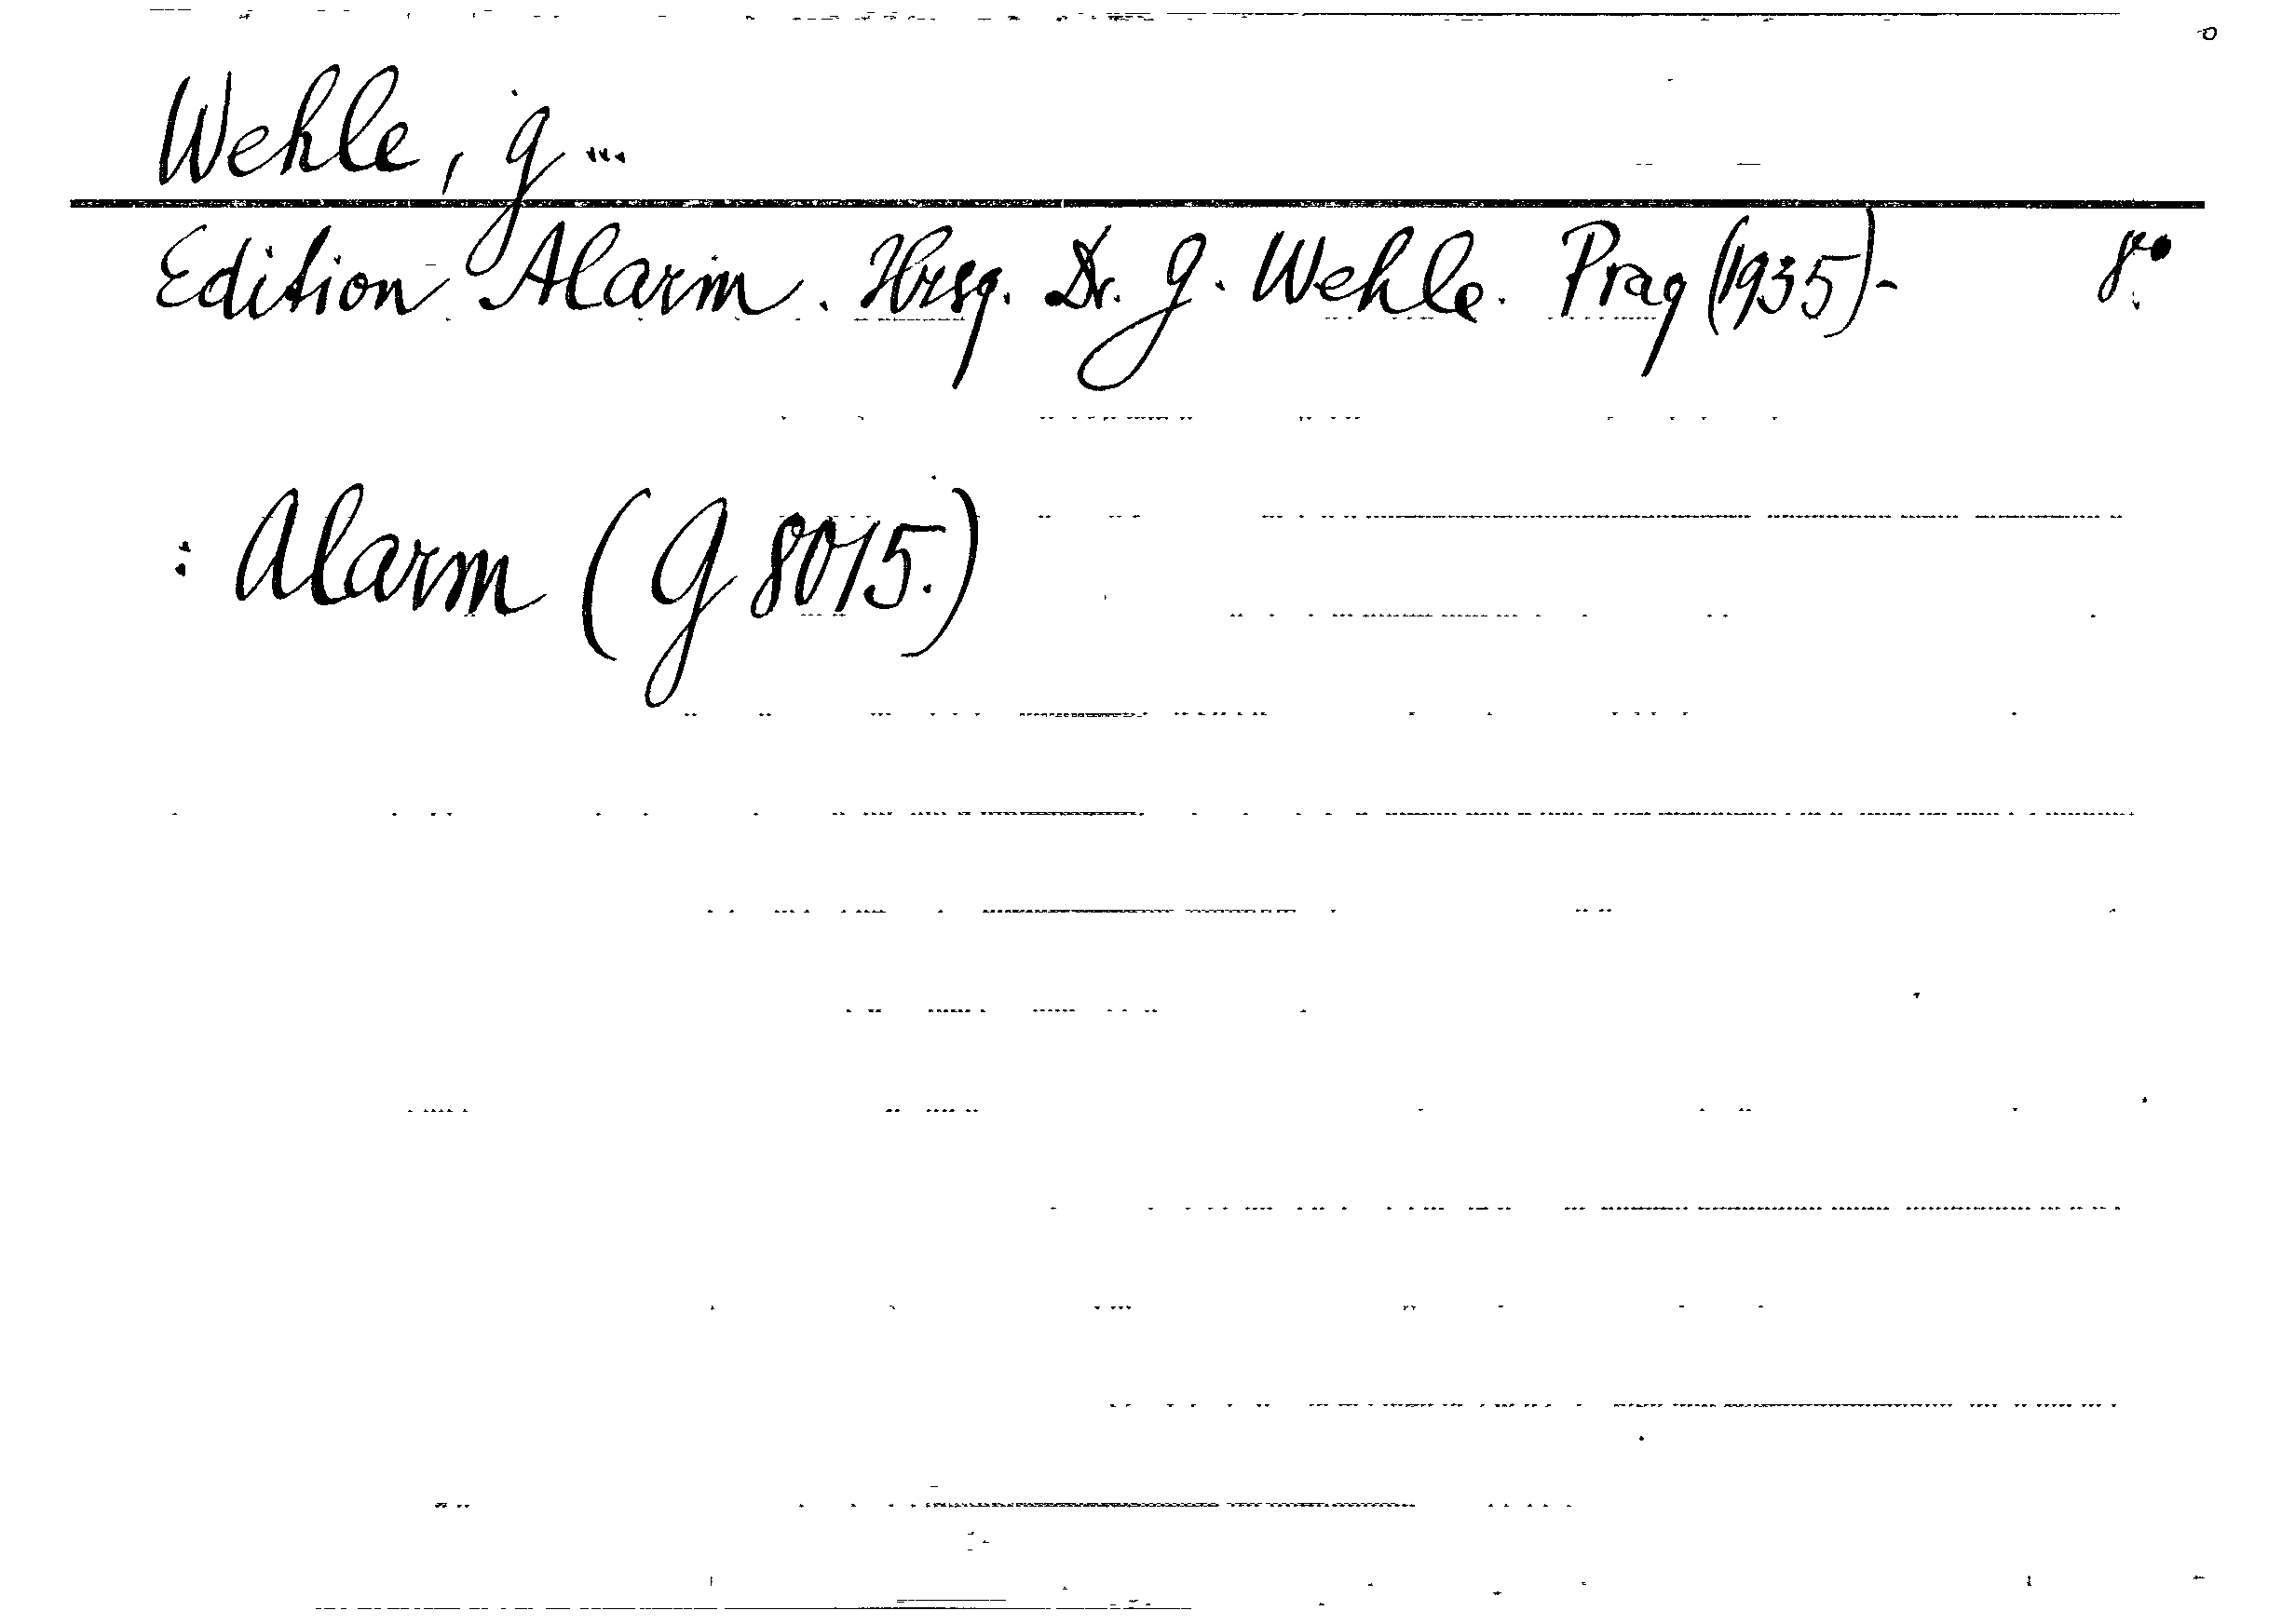 Wehle, G...
Edition Alarm. Hrsg. Dr. G. Wehle. Prag (1935)- 8°.
: Alarm (G 8015.)